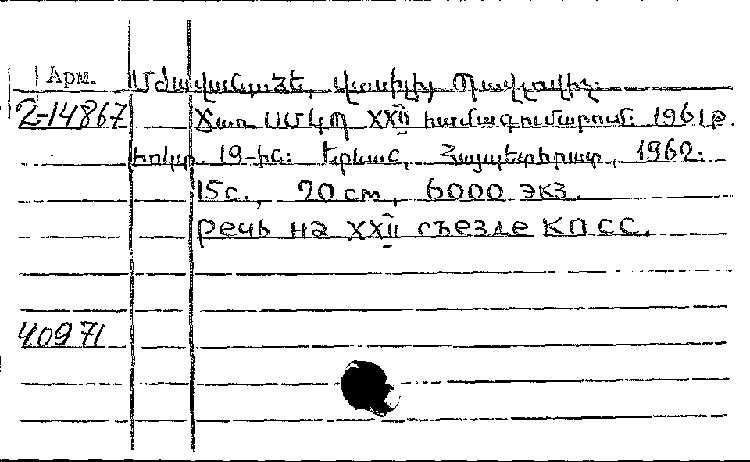 Арм. Մժավանաձե, Վասիլիյ Պավլովիչ:
2-14867 Ճառ ՍՄԿՊ XXII համագումարում: 1961թ.
հոկտ. 19-ին: Երևան, Հայպետհրատ, 1962:
15с., 20 см, 6000 экз.
Речь на XXII съезде КПСС.
40971